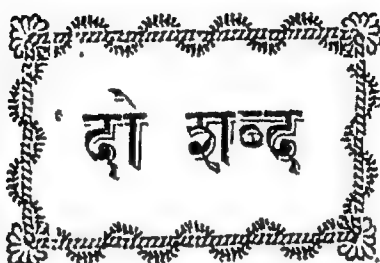 दो शब्द